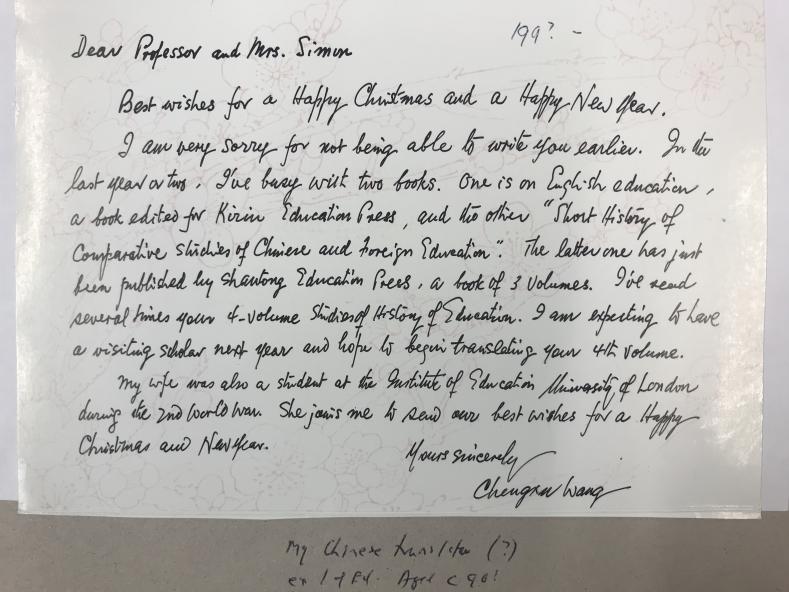 199? -
Dear Professor and Mrs. Simon
Best wishes for a Happy Christmas and a Happy New Year.
I am very sorry for not being able to write you earlier. In the
last year or two, I've busy with two books. One is on English education,
a book edited for Kirin Education Press, and the other "Short History of
Comparative Studies of Chinese and Foreign Education". The latter one has just
been published by Shantong Education Press, a book of 3 volumes. I've read
several times your 4-volume Studies of History of Education. I am expecting to have
a visiting scholar next year and hope to begin translating your 4th volume.
My wife was also a student at the Institute of Education University of London
during the 2nd World War. She joins me to send our best wishes for a Happy
Christmas and New Year.
Yours sincerely
Chengxu Wang
My Chinese translator (?)
ex I of Ed. Aged c 90!